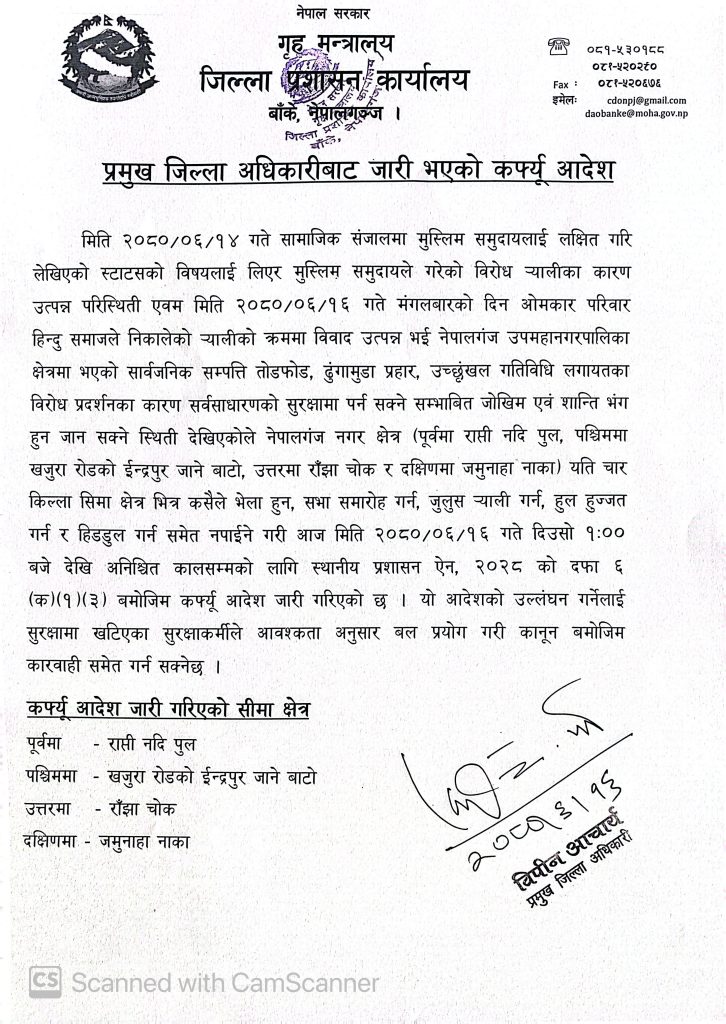 नेपाल सरकार
गृह मन्त्रालय
जिल्ला प्रशासन कार्यालय
बाँके, नेपालगञ्ज ।
☏ ०८१-५३०१८८
०८१-५२०२९०
Fax : ०८१-५२०६७६
इमेलः cdonpj@gmail.com
daobanke@moha.gov.np
प्रमुख जिल्ला अधिकारीबाट जारी भएको कर्फ्यू आदेश
मिति २०८०/०६/१४ गते सामाजिक संजालमा मुस्लिम समुदायलाई लक्षित गरि
लेखिएको स्टाटसको विषयलाई लिएर मुस्लिम समुदायले गरेको विरोध ऱ्यालीका कारण
उत्पन्न परिस्थिती एवम मिति २०८०/०६/१६ गते मंगलबारको दिन ओमकार परिवार
हिन्दु समाजले निकालेको ऱ्यालीको क्रममा विवाद उत्पन्न भई नेपालगंज उपमहानगरपालिका
क्षेत्रमा भएको सार्वजनिक सम्पत्ति तोडफोड, ढुंगामुडा प्रहार, उच्छृंखल गतिविधि लगायतका
विरोध प्रदर्शनका कारण सर्वसाधारणको सुरक्षामा पर्न सक्ने सम्भाबित जोखिम एवं शान्ति भंग
हुन जान सक्ने स्थिती देखिएकोले नेपालगंज नगर क्षेत्र (पूर्वमा राप्ती नदि पुल, पश्चिममा
खजुरा रोडको ईन्द्रपुर जाने बाटो, उत्तरमा राँझा चोक र दक्षिणमा जमुनाहा नाका) यति चार
किल्ला सिमा क्षेत्र भित्र कसैले भेला हुन, सभा समारोह गर्न, जुलुस ऱ्याली गर्न, हुल हुज्जत
गर्न र हिडडुल गर्न समेत नपाईने गरी आज मिति २०८०/०६/१६ गते दिउसो १:००
बजे देखि अनिश्चित कालसम्मको लागि स्थानीय प्रशासन ऐन, २०२८ को दफा ६
(क)(१)(३) बमोजिम कर्फ्यू आदेश जारी गरिएको छ । यो आदेशको उल्लंघन गर्नेलाई
सुरक्षामा खटिएका सुरक्षाकर्मीले आवश्कता अनुसार बल प्रयोग गरी कानून बमोजिम
कारवाही समेत गर्न सक्नेछ ।
कर्फ्यू आदेश जारी गरिएको सीमा क्षेत्र
पूर्वमा - राप्ती नदि पुल
पश्चिममा - खजुरा रोडको ईन्द्रपुर जाने बाटो
उत्तरमा - राँझा चोक
दक्षिणमा - जमुनाहा नाका
२०८०/६/१६
विपीन आचार्य
प्रमुख जिल्ला अधिकारी
CS Scanned with CamScanner